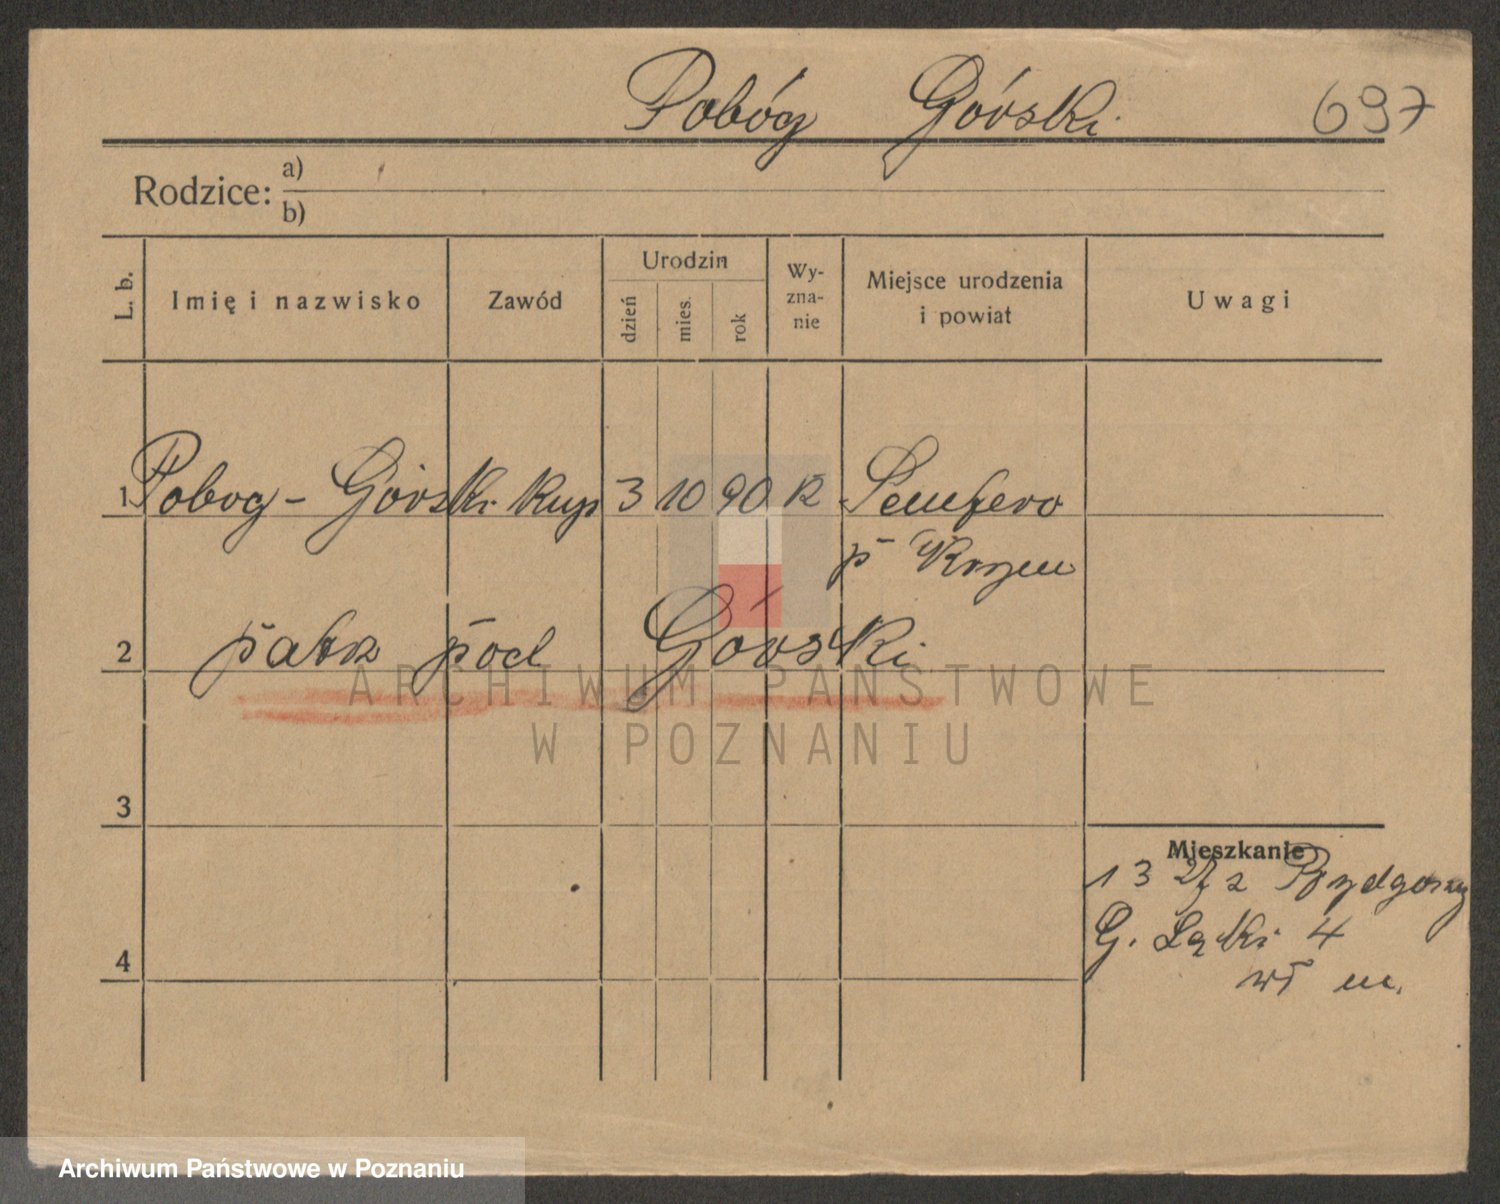 Pobóg Górski 697
Rodzice: a)
b)
L. b. Imię i nazwisko Zawód Urodzin dzień mies. rok Wy-zna-nie Miejsce urodzenia i powiat Uwagi
1 Pobog - Górski Kup 3 10 90 R
p
2 patrz pod Górski
ARCHIWUM PAŃSTWOWE
W POZNANIU
3
Mieszkanie
13 Bydgoszcz
G. Łąki 4
4
wł m.
Archiwum Państwowe w Poznaniu